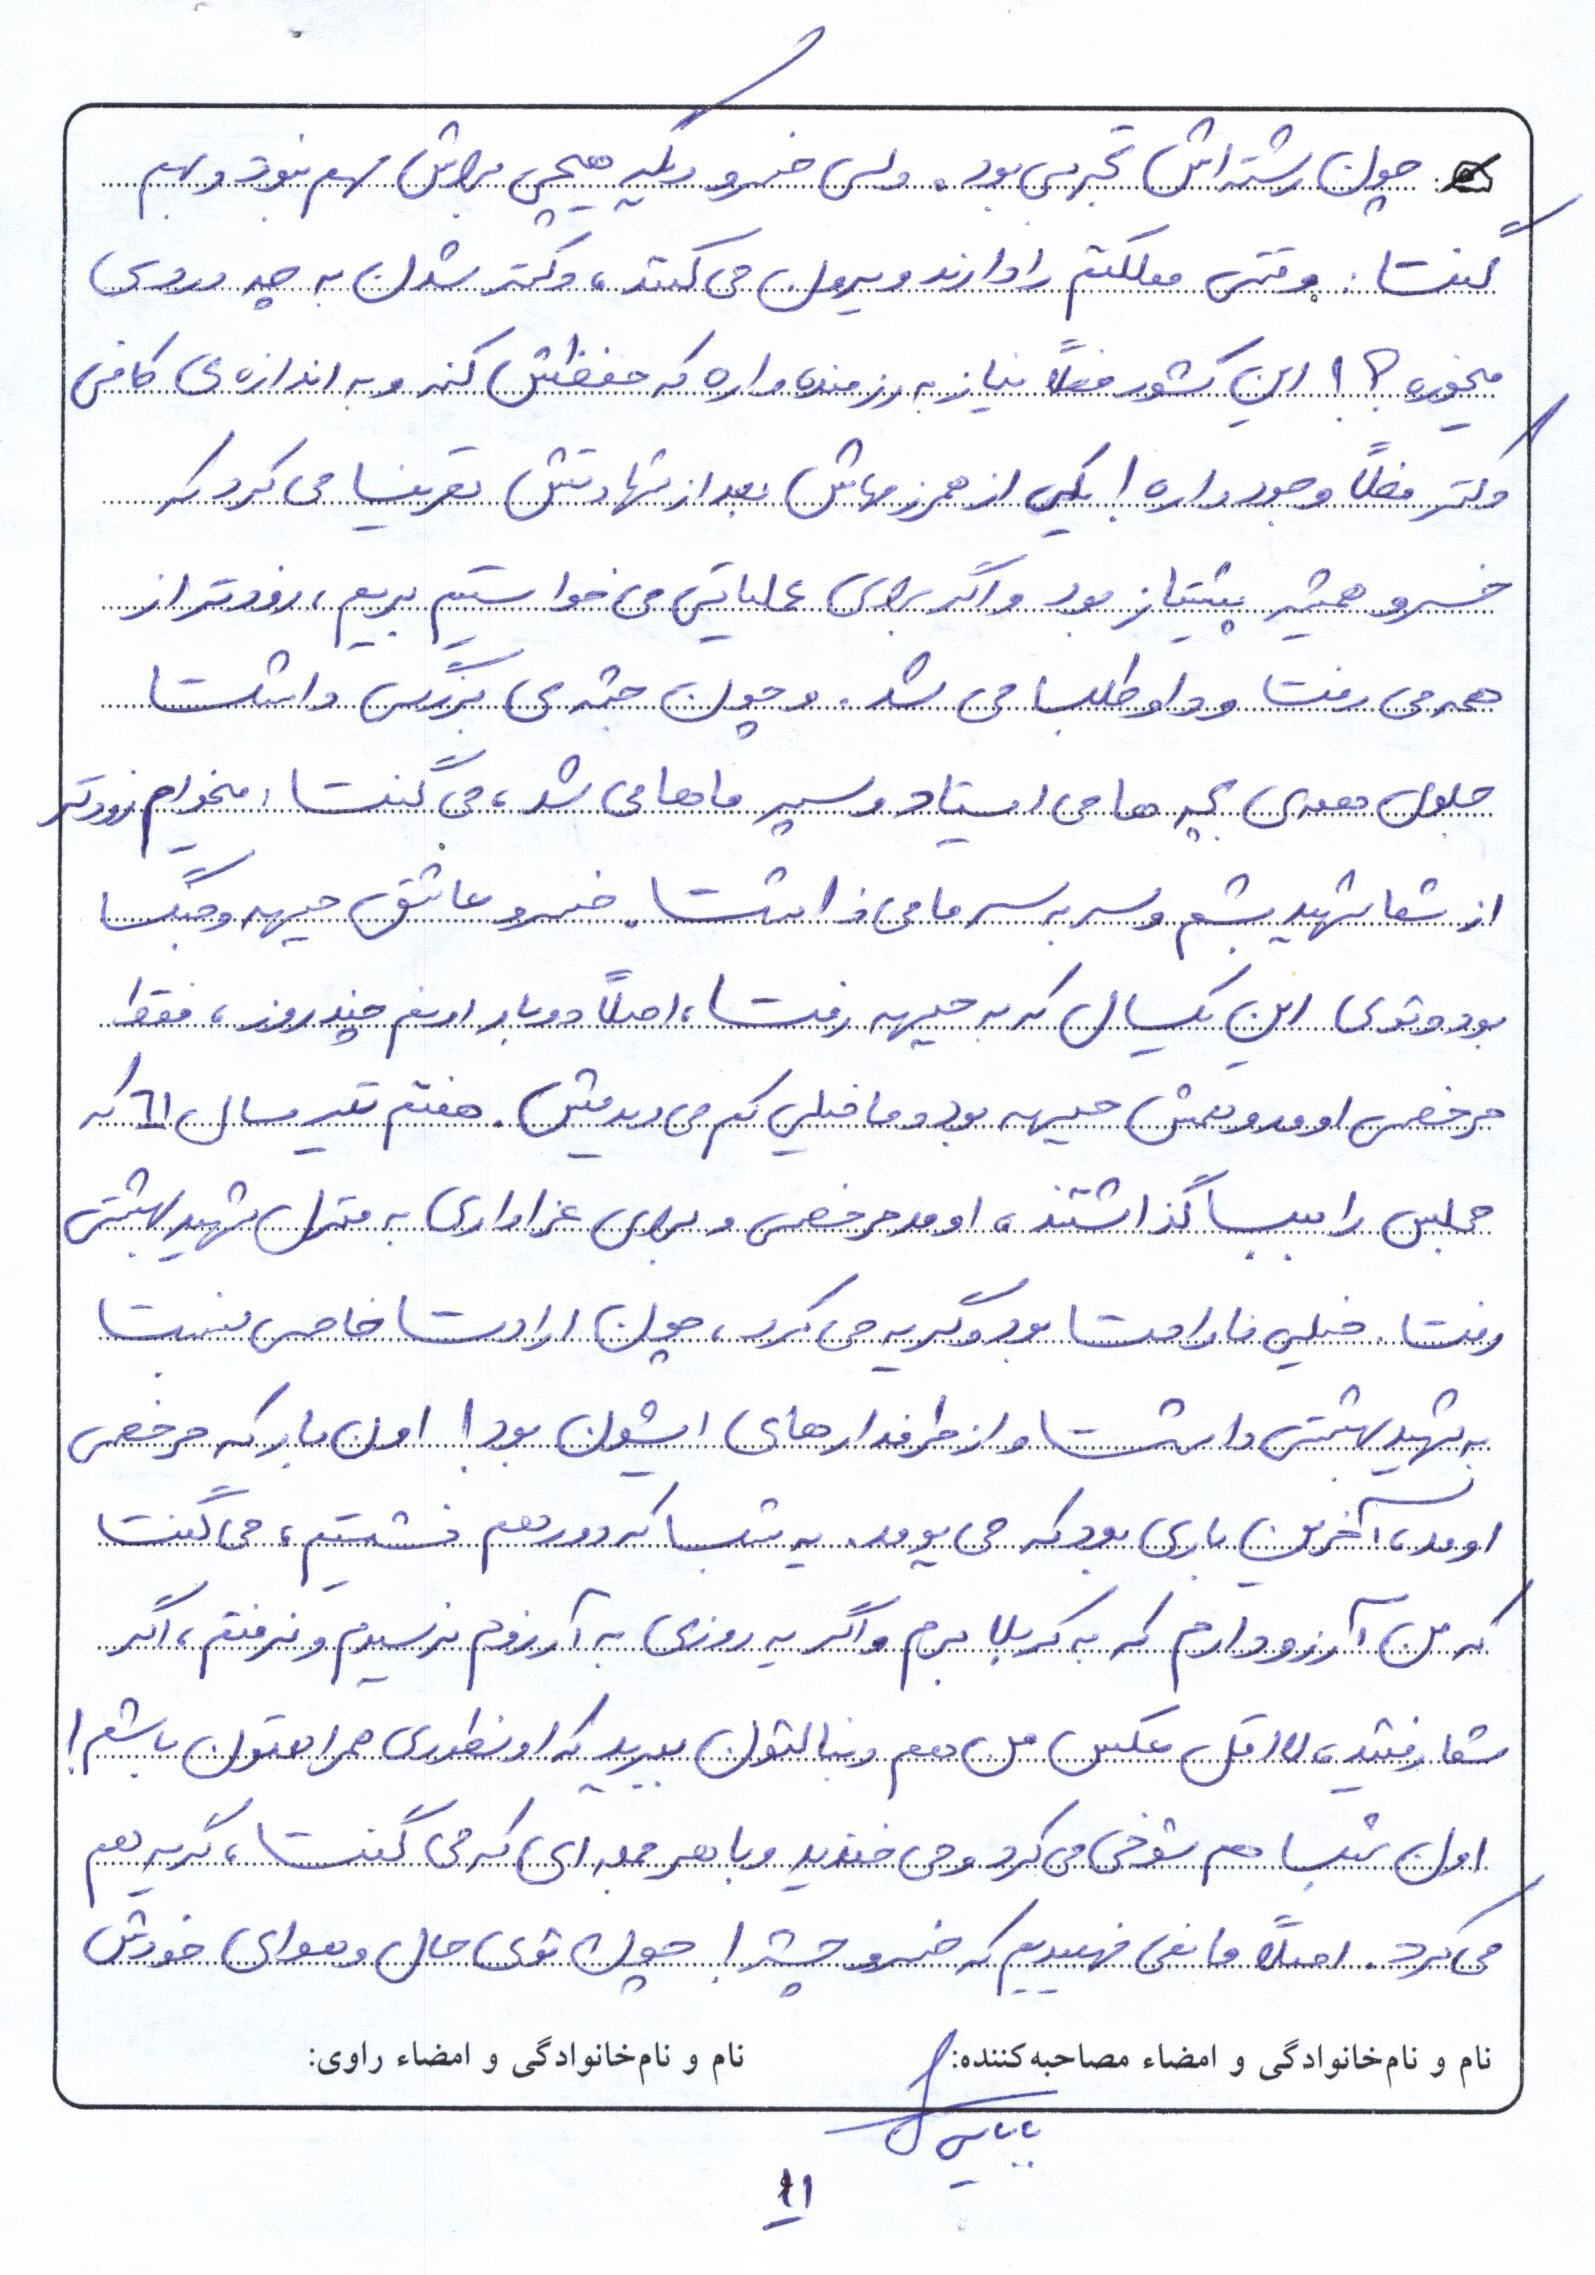 چون رشته‌اش تجربی بود. ولی خسرو دیگه هیچی براش مهم نبود و بهم
گفت: وقتی مملکتم را دارند ویرون می‌کنند، دکتر شدن به چه دردی
میخوره؟! این کشور فعلاً نیاز به رزمنده داره که حفظش کنه و به اندازه‌ی کافی
دکتر فعلاً وجود داره! یکی از همرزمهاش بعد از شهادتش تعریف می‌کرد که
خسرو همیشه پیشتاز بود و اگر برای عملیاتی می‌خواستیم بریم، زودتر از
همه می‌رفت و داوطلب می‌شد. و چون جثه‌ی بزرگی داشت
جلوی همه‌ی بچه‌ها می‌ایستاد و سپر ماها می‌شد، می‌گفت: میخوام زودتر
از شما شهید بشم و سر به سر ما می‌ذاشت. خسرو عاشق جبهه و جنگ
بود و توی این یکسال که به جبهه رفت، اصلاً دوبار اونم چند روز، فقط
مرخصی اومد و همش جبهه بود و ما خیلی کم می‌دیدمش. هفتم تیر سال ۶۱ که
مجلس را بمب گذاشتند، اومد مرخصی و برای عزاداری به منزل شهید بهشتی
رفت. خیلی ناراحت بود و گریه می‌کرد، چون ارادت خاصی نسبت
به شهید بهشتی داشت و از طرفدارهای ایشون بود! اون بار که مرخصی
اومد، آخرین باری بود که می‌یومد. یه شب که دور هم نشستیم، می‌گفت
که من آرزو دارم که به کربلا برم و اگر یه روزی به آرزوم نرسیدم و نرفتم، اگر
شما رفتید، لااقل عکس من هم دنبالتون ببرید که اونطوری همراهتون باشم!
اون شب هم شوخی می‌کرد و می‌خندید و با هر جمله‌ای که می‌گفت، گریه هم
می‌کرد. اصلاً ما نمی‌فهمیدیم که خسرو چشه! چون توی حال و هوای خودش
نام و نام‌خانوادگی و امضاء مصاحبه‌کننده: نام و نام‌خانوادگی و امضاء راوی:
بابایی
۱۱